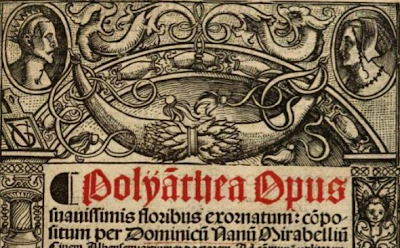 ¶ Polyãthea Opus
suauissimis floribus exornatum: cõpo
situm per Dominicũ Nanũ Mirabelliũ
Ciuem